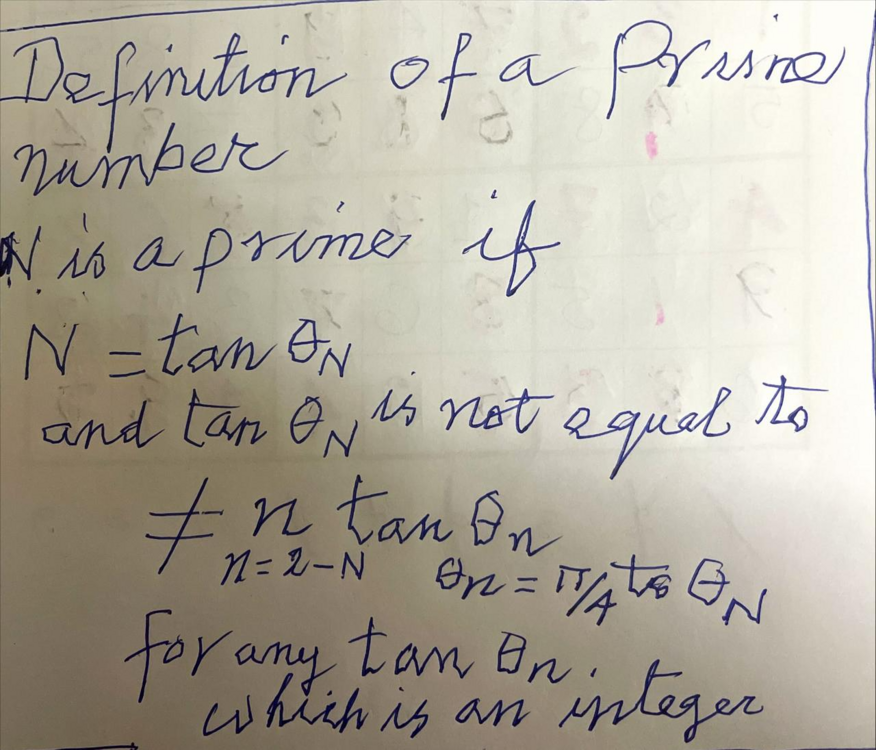 Definition of a Prime
number
N is a prime if
N = tan θN
and tan θN is not equal to
≠ n tan θn
n = 2 - N θn = π/4 to θN
for any tan θn.
which is an integer